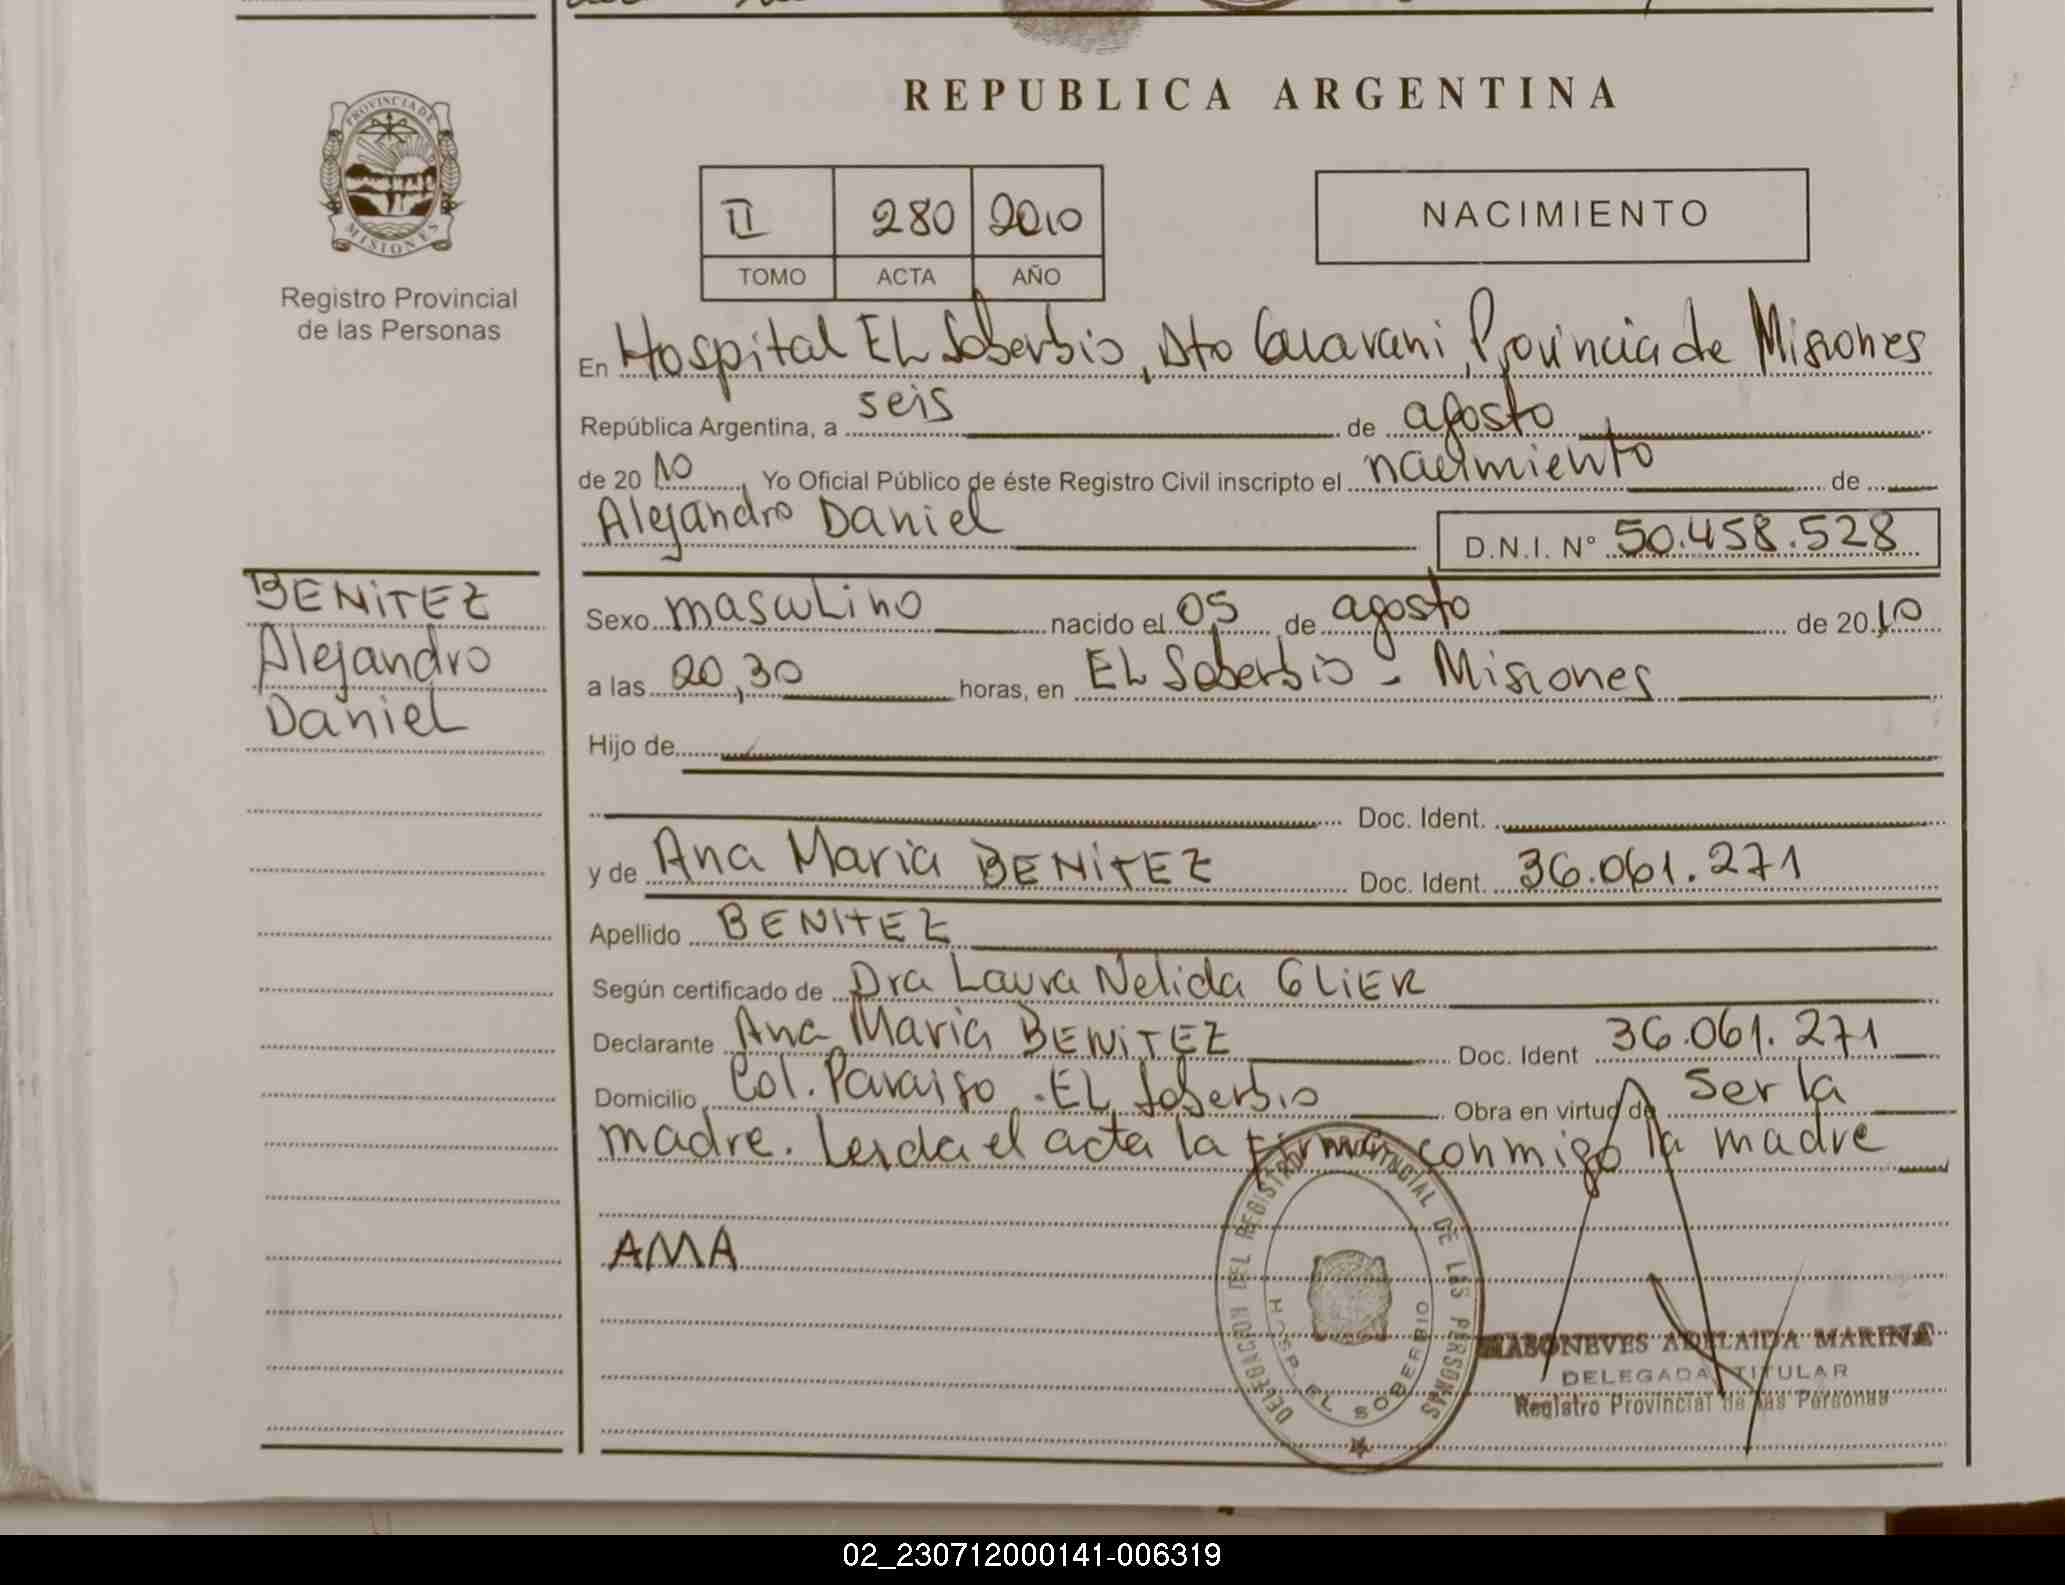 REPUBLICA ARGENTINA
PROVINCIA DE
MISIONES
Registro Provincial
de las Personas
II 280 2010
TOMO ACTA AÑO
NACIMIENTO
En Hospital EL Soberbio, Dto Guarani, Provincia de Misiones
República Argentina, a seis de agosto
de 2010 Yo Oficial Público de éste Registro Civil inscripto el nacimiento de
Alejandro Daniel D.N.I. N° 50.458.528
BENITEZ
Alejandro
Daniel
Sexo masculino nacido el 05 de agosto de 2010
a las 20,30 horas, en EL Soberbio - Misiones
Hijo de
Doc. Ident.
y de Ana Maria BENITEZ Doc. Ident. 36.061.271
Apellido BENITEZ
Según certificado de Dra Laura Nelida GLIER
Declarante Ana Maria BENITEZ Doc. Ident 36.061.271
Domicilio Col. Paraiso - EL Soberbio Obra en virtud de Ser la
madre. Leida el acta la firma conmigo la madre
AMA
DELEGACION DEL REGISTRO PROVINCIAL DE LAS PERSONAS
HOSP. EL SOBERBIO
ADELAIDA MARINA
DELEGADA TITULAR
Registro Provincial de las Personas
02_230712000141-006319